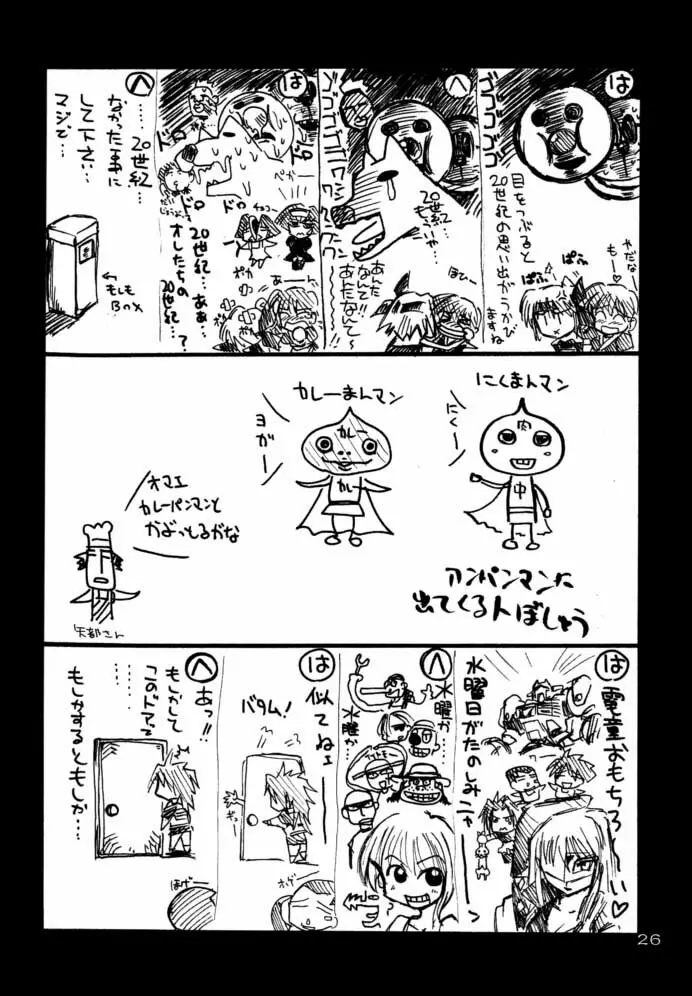 は
ゴゴゴゴ
目をつぶると
20世紀の思い出がうかび
ますね
やだな
もー♡
ぱふ
ぱふ
へ
ゴゴゴゴゴ
ワンワンワン
20世紀
もいいや…
あんた
なんて!!
あんたなんて〜
ほひー
は
ドロ
ドロ
ドロ
ドロ
ペカー
ポカ
あーーん
20世紀…あぁ…
オレたちの
20世紀…?
へ
……20世紀…
なかった事に
して下さい…
マジで…
←もしも
Box
にくまんマン
にくー
肉
中
カレーまんマン
ヨガー
カレー
カレー
オマエ
カレーパンマンと
かぶっとるがな
矢部さん
アンパンマンに
出てくる人ぼしゅう
は
電童おもちろーい♡
水曜日がたのしみニャー
へ
水曜か
水曜か
は
似てねェ
バタム!
へ
あっ!!
もしかして
このドアって
……
もしかするともしか…
はげー
26